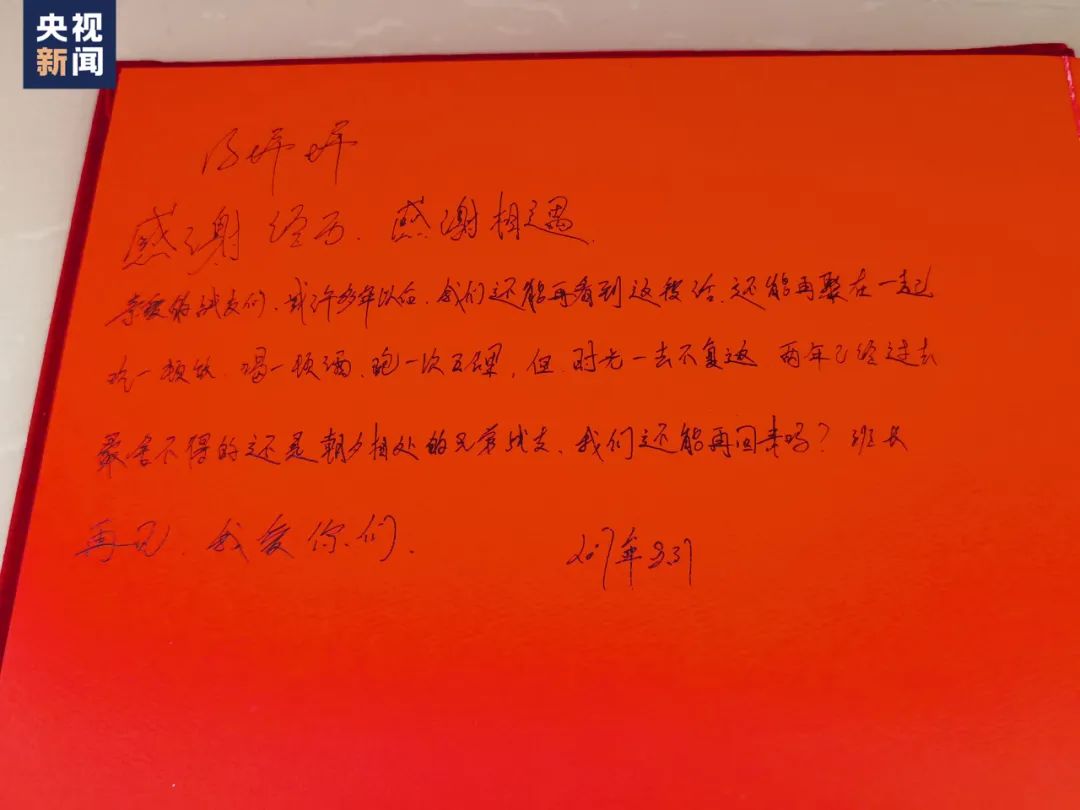 央视
新闻
冯坪坪
感谢经历、感谢相遇、
亲爱的战友们、或许多年以后、我们还能再看到这段话、还能再聚在一起
吃一顿饭、喝一顿酒、跑一次五公里，但、时光一去不复返 两年已经过去
最舍不得的还是朝夕相处的兄弟战友、我们还能再回来吗？班长
再见、我爱你们、
2017年8.31